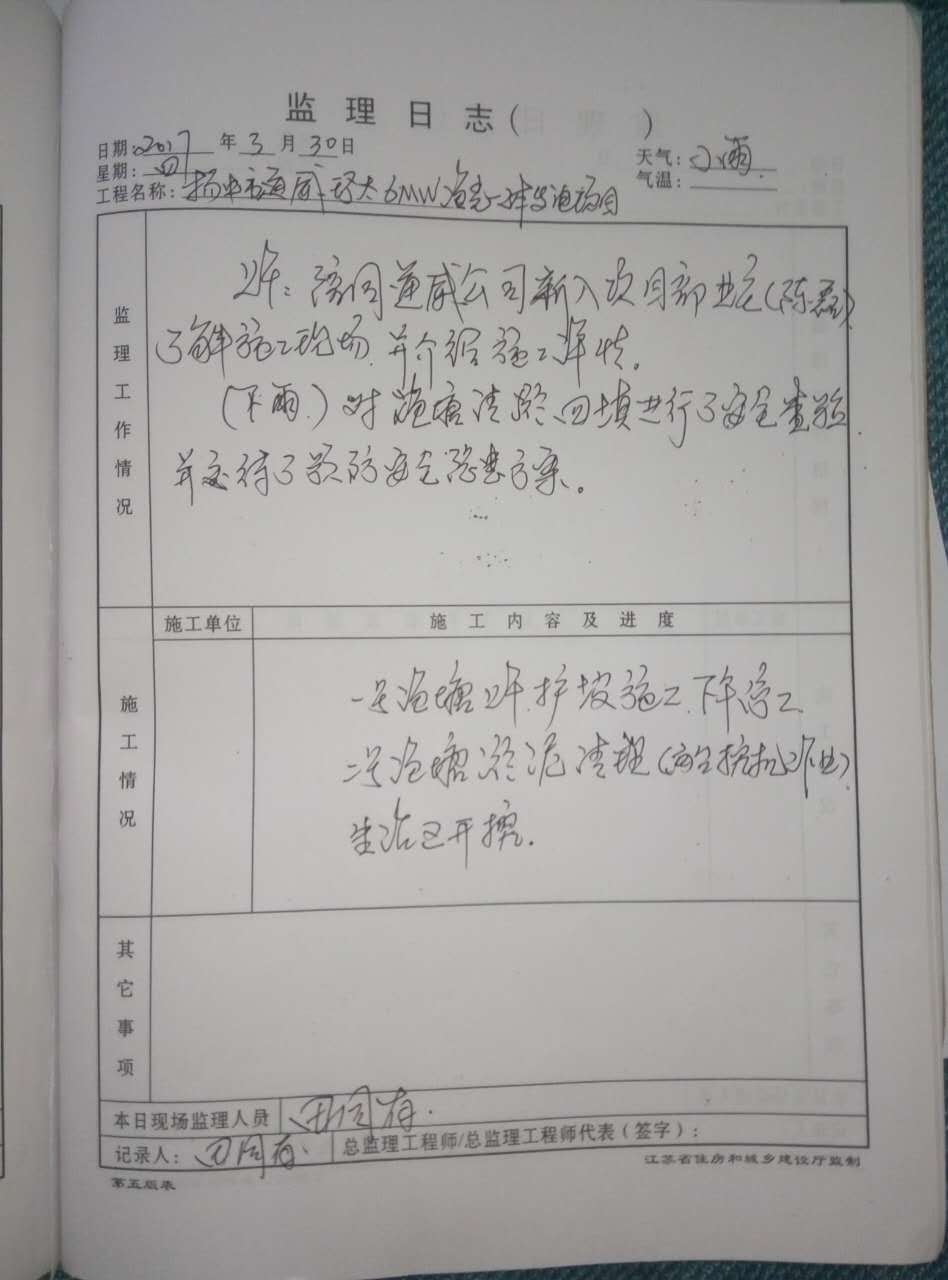 监理日志（ ）
日期：2017年3月30日
星期：四
天气：小雨.
气温：
工程名称：扬中市通威 6MW渔光一体发电项目
监理工作情况
上午：陪同通威公司新入项目部 (陈磊)
了解施工现场.并介绍施工详情。
(下雨.)对 塘清淤回填进行了安全查验
并交待了预防安全隐患方案。
施工单位
施工内容及进度
施工情况
一号渔塘上午.护坡施工.下午停工
二号渔塘淤泥清理( 挖机作业)
生活区开挖.
其它事项
本日现场监理人员
记录人：
总监理工程师/总监理工程师代表（签字）：
江苏省住房和城乡建设厅监制
第五版表